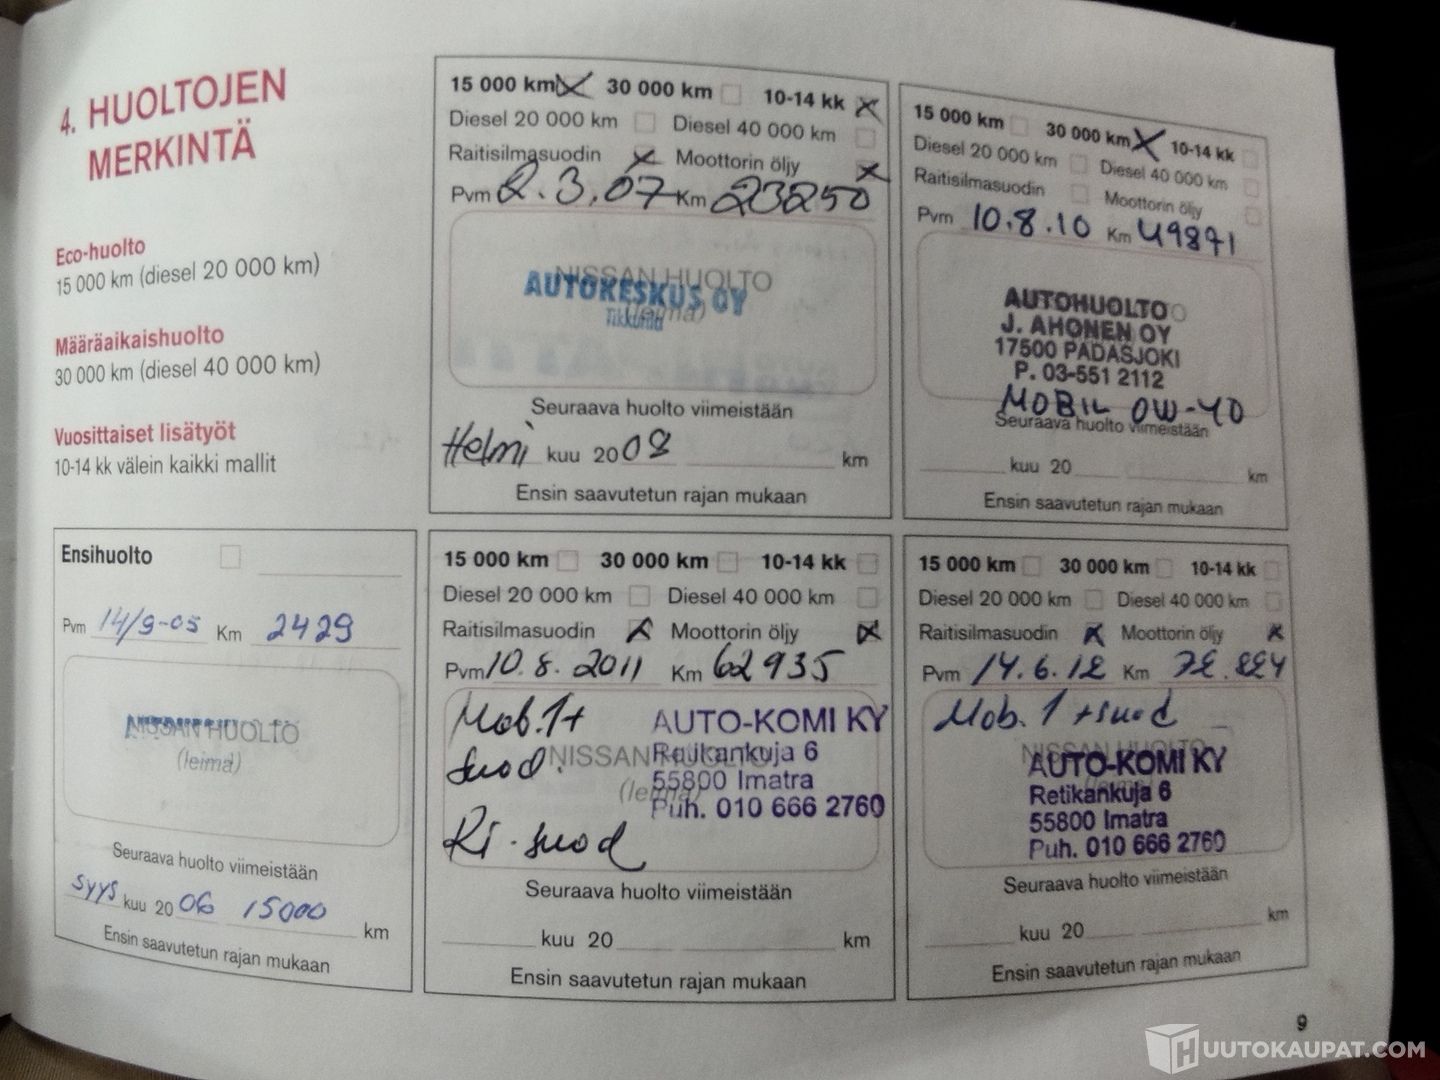 4. HUOLTOJEN
MERKINTÄ
Eco-huolto
15 000 km (diesel 20 000 km)
Määräaikaishuolto
30 000 km (diesel 40 000 km)
Vuosittaiset lisätyöt
10-14 kk välein kaikki mallit
15 000 km 30 000 km 10-14 kk
Diesel 20 000 km Diesel 40 000 km
Raitisilmasuodin Moottorin öljy
Pvm 2.3.07 Km 23250
NISSAN HUOLTO
AUTOKESKUS OY
(leima)
Tikkurila
Seuraava huolto viimeistään
Helmi kuu 2008 km
Ensin saavutetun rajan mukaan
15 000 km 30 000 km 10-14 kk
Diesel 20 000 km Diesel 40 000 km
Raitisilmasuodin Moottorin öljy
Pvm 10.8.10 Km 49871
AUTOHUOLTO
J. AHONEN OY
17500 PADASJOKI
P. 03-551 2112
MOBIL 0W-40
Seuraava huolto viimeistään
kuu 20 km
Ensin saavutetun rajan mukaan
Ensihuolto
Pvm 14/9-05 Km 2429
NISSAN HUOLTO
(leima)
Seuraava huolto viimeistään
syys kuu 2006 15000 km
Ensin saavutetun rajan mukaan
15 000 km 30 000 km 10-14 kk
Diesel 20 000 km Diesel 40 000 km
Raitisilmasuodin Moottorin öljy
Pvm 10.8.2011 Km 62935
Mob.1+ AUTO-KOMI KY
Retikankuja 6
suod. NISSAN HUOLTO
55800 Imatra
(leima)
Puh. 010 666 2760
Ri.suod
Seuraava huolto viimeistään
kuu 20 km
Ensin saavutetun rajan mukaan
15 000 km 30 000 km 10-14 kk
Diesel 20 000 km Diesel 40 000 km
Raitisilmasuodin Moottorin öljy
Pvm 14.6.12 Km
Mob. 1 +suod
NISSAN HUOLTO
AUTO-KOMI KY
Retikankuja 6
55800 Imatra
Puh. 010 666 2760
Seuraava huolto viimeistään
kuu 20 km
Ensin saavutetun rajan mukaan
9
HUUTOKAUPAT.COM